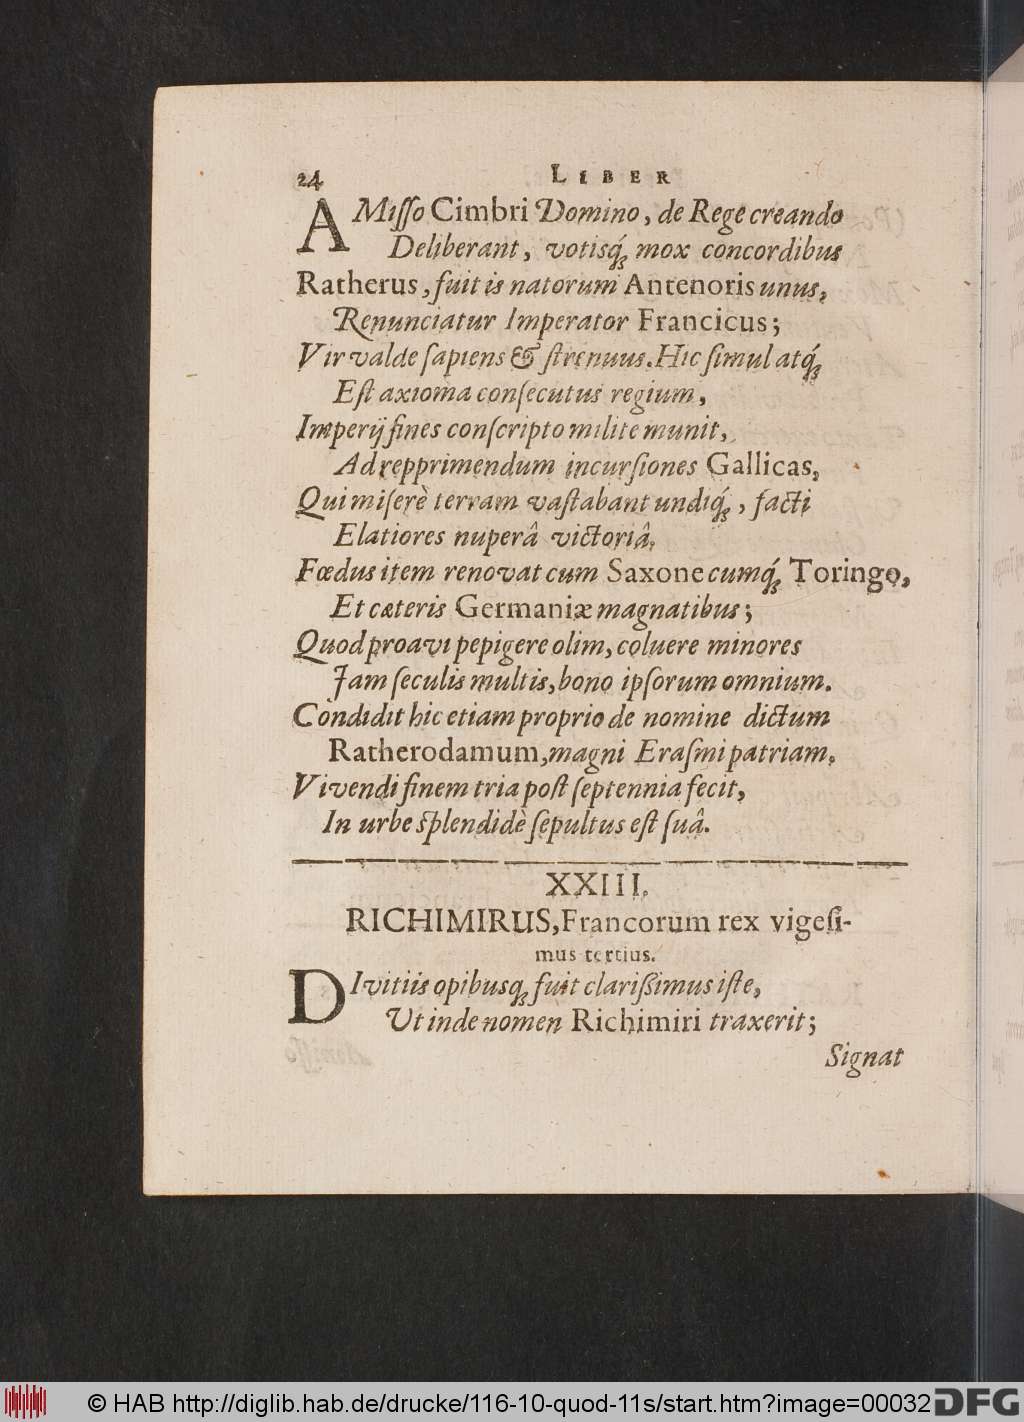 24 LIBER
AMisso Cimbri Domino, de Rege creando
Deliberant, votisq́; mox concordibus
Ratherus, fuit is natorum Antenoris unus,
Renunciatur Imperator Francicus;
Vir valde sapiens & strenuus. Hic simul atq́;
Est axioma consecutus regium,
Imperij fines conscripto milite munit,
Ad repprimendum incursiones Gallicas,
Qui miserè terram vastabant undiq́;, facti
Elatiores nuperâ victoriâ.
Fœdus item renovat cum Saxone cumq́; Toringo,
Et cæteris Germaniæ magnatibus;
Quod proavi pepigere olim, coluere minores
Jam seculis multis, bono ipsorum omnium.
Condidit hic etiam proprio de nomine dictum
Ratherodamum, magni Erasmi patriam.
Vivendi finem tria post septennia fecit,
In urbe splendidè sepultus est suâ.
XXIII.
RICHIMIRUS, Francorum rex vigesi-
mus tertius.
DIvitiis opibusq; fuit clarissimus iste,
Ut inde nomen Richimiri traxerit;
Signat
© HAB http://diglib.hab.de/drucke/116-10-quod-11s/start.htm?image=00032 DFG